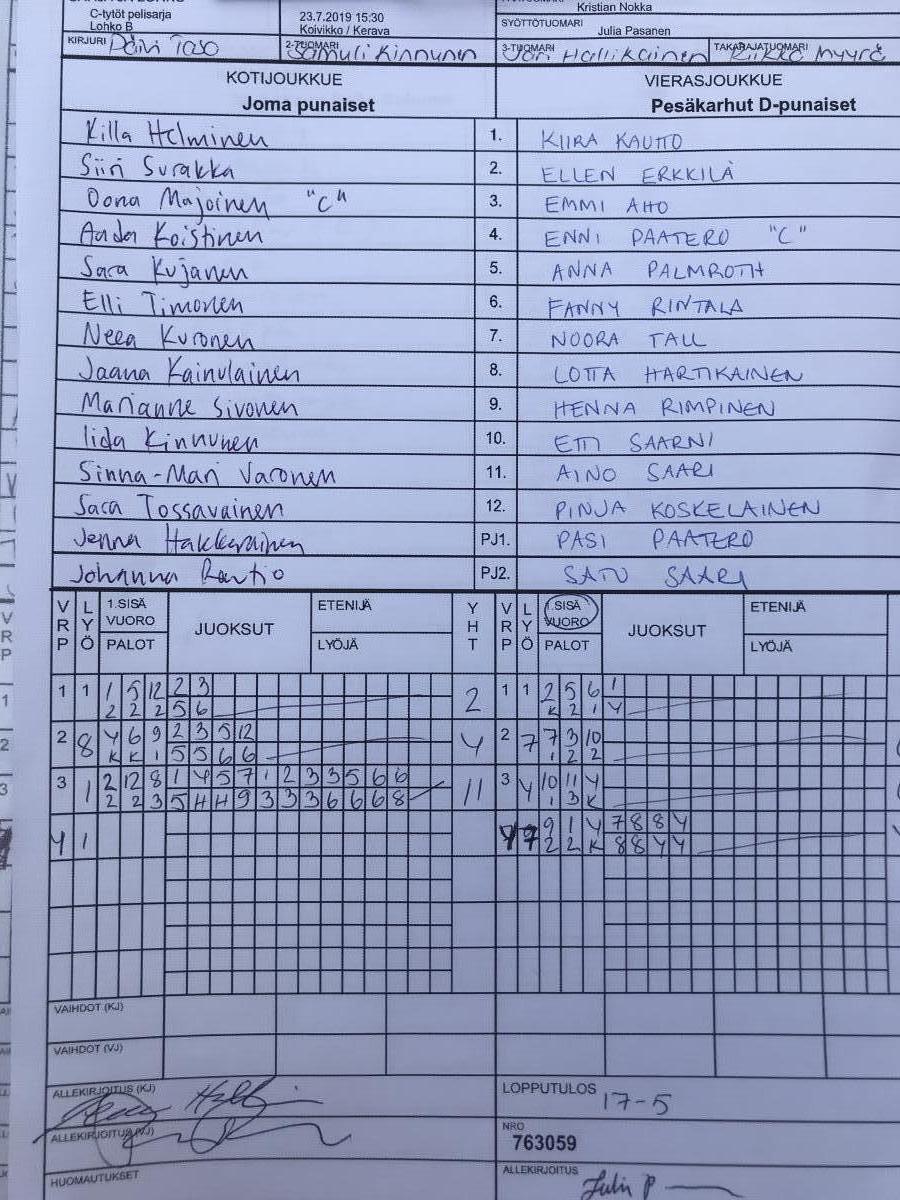 Kristian Nokka
C-tytöt pelisarja
Lohko B
23.7.2019 15:30
Koivikko / Kerava
SYÖTTÖTUOMARI
Julia Pasanen
KIRJURI Päivi Taso 2-TUOMARI Samuli Kinnunen 3-TUOMARI Jari Hallikainen TAKARAJATUOMARI Riikka Myyrä
KOTIJOUKKUE VIERASJOUKKUE
Joma punaiset Pesäkarhut D-punaiset
Killa Helminen 1. KIIRA KAUTTO
Siiri Surakka 2. ELLEN ERKKILÄ
Oona Majoinen "C" 3. EMMI AHO
Aada Koistinen 4. ENNI PAATERO "C"
Sara Kujanen 5. ANNA PALMROTH
Elli Timonen 6. FANNY RINTALA
Neea Kuronen 7. NOORA TALL
Jaana Kainulainen 8. LOTTA HARTIKAINEN
Marianne Sivonen 9. HENNA RIMPINEN
Iida Kinnunen 10. ETTI SAARNI
Sinna-Mari Varonen 11. AINO SAARI
Sara Tossavainen 12. PINJA KOSKELAINEN
Jenna Hakkarainen PJ1. PASI PAATERO
Johanna Rautio PJ2. SATU SAARI
VRP LYÖ 1.SISÄ VUORO PALOT JUOKSUT ETENIJÄ LYÖJÄ YHT VRP LYÖ 1.SISÄ VUORO PALOT JUOKSUT ETENIJÄ LYÖJÄ
1 1 1 5 12 2 3 2 1 1 2 5 6 1
2 2 2 5 6 K 2 1 4
2 8 4 6 9 2 3 5 12 4 2 7 7 3 10
K K 1 5 5 6 6 1 2 2
3 1 2 12 8 1 4 5 7 1 2 3 3 5 6 6 11 3 4 10 11 4
2 2 3 5 H H 9 3 3 3 6 6 6 8 1 3 K
4 1 4 7 9 1 4 7 8 8 4
2 2 K 8 8 4 4
VAIHDOT (KJ)
VAIHDOT (VJ)
ALLEKIRJOITUS (KJ) LOPPUTULOS 17-5
ALLEKIRJOITUS (VJ) NRO
763059
HUOMAUTUKSET ALLEKIRJOITUS
Julia P